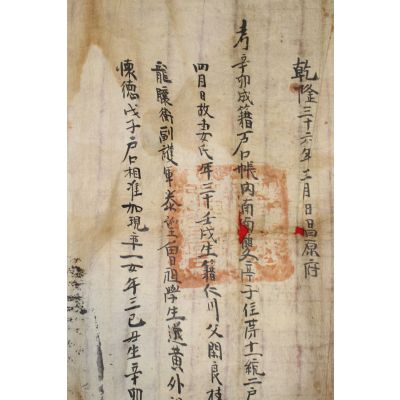 乾隆三十六年二月日昌原府
考辛卯成籍戶口帳內南面亭子住第十一統二戶
四月日故妻氏年三十壬戌生籍仁川父閑良桂
龍驤衛副護軍泰望曾祖學生還黃外祖
懷德戊子戶口相准加現率一女年三己丑生辛卯